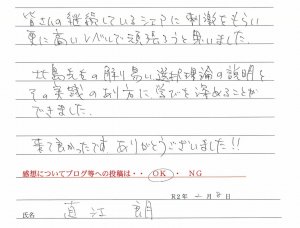 皆さんの継続しているシェアに刺激をもらい
更に高いレベルで頑張ろうと思いました。
先生の解り易い選択理論の説明と
その実践のあり方に学びを深めることが
できました。
来て良かったです。ありがとうございました!!
感想についてブログ等への投稿は・・ OK ・ NG
R2年 月 日
氏名 直江 朗